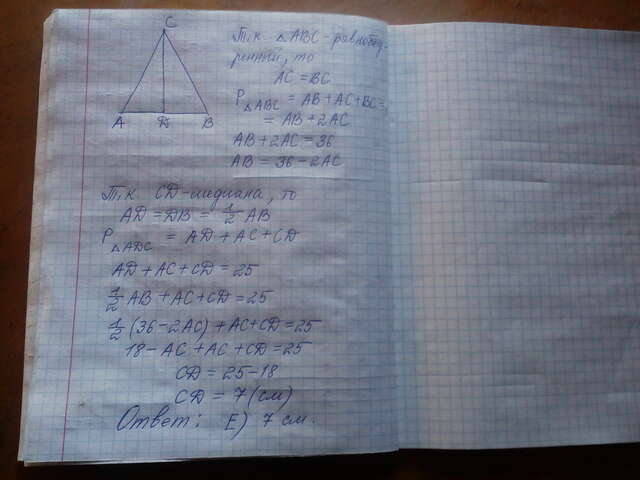 C
A D B
Т.к. △ABC - равнобед-
ренный, то
AC = BC
P△ABC = AB + AC + BC =
= AB + 2AC
AB + 2AC = 36
AB = 36 - 2AC
Т.к. CD - медиана, то
AD = DB = 1/2 AB
P△ADC = AD + AC + CD
AD + AC + CD = 25
1/2 AB + AC + CD = 25
1/2 (36 - 2AC) + AC + CD = 25
18 - AC + AC + CD = 25
CD = 25 - 18
CD = 7 (см)
Ответ: E) 7 см.